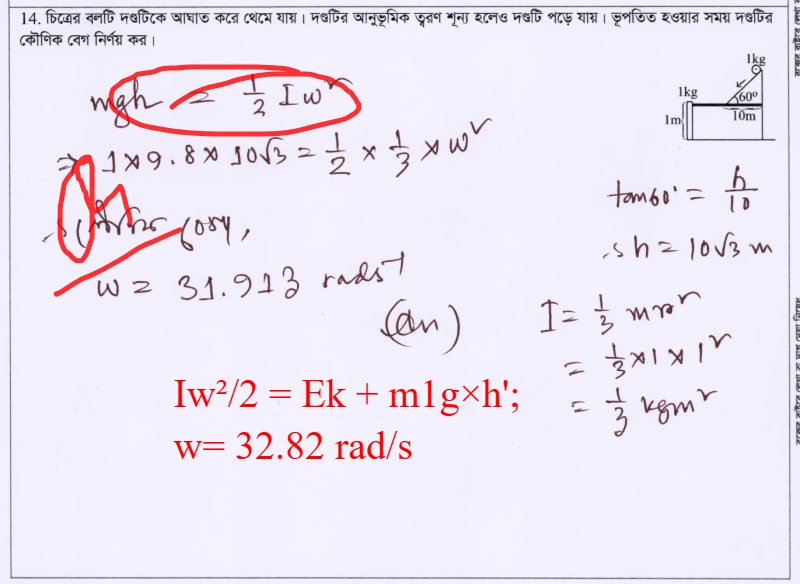 14. চিত্রের বলটি দণ্ডটিকে আঘাত করে থেমে যায়। দণ্ডটির আনুভূমিক ত্বরণ শূন্য হলেও দণ্ডটি পড়ে যায়। ভূপতিত হওয়ার সময় দণ্ডটির
কৌণিক বেগ নির্ণয় কর।
1kg
1kg
60°
1m
10m
mgh = 1/2 Iw²
⇒ 1×9.8×10√3 = 1/2 × 1/3 × w²
w = 31.913 rads⁻¹
(An)
tan60° = h/10
∴ h = 10√3 m
I = 1/3 mr²
= 1/3 ×1×1²
= 1/3 kgm²
Iw²/2 = Ek + m1g×h';
w= 32.82 rad/s